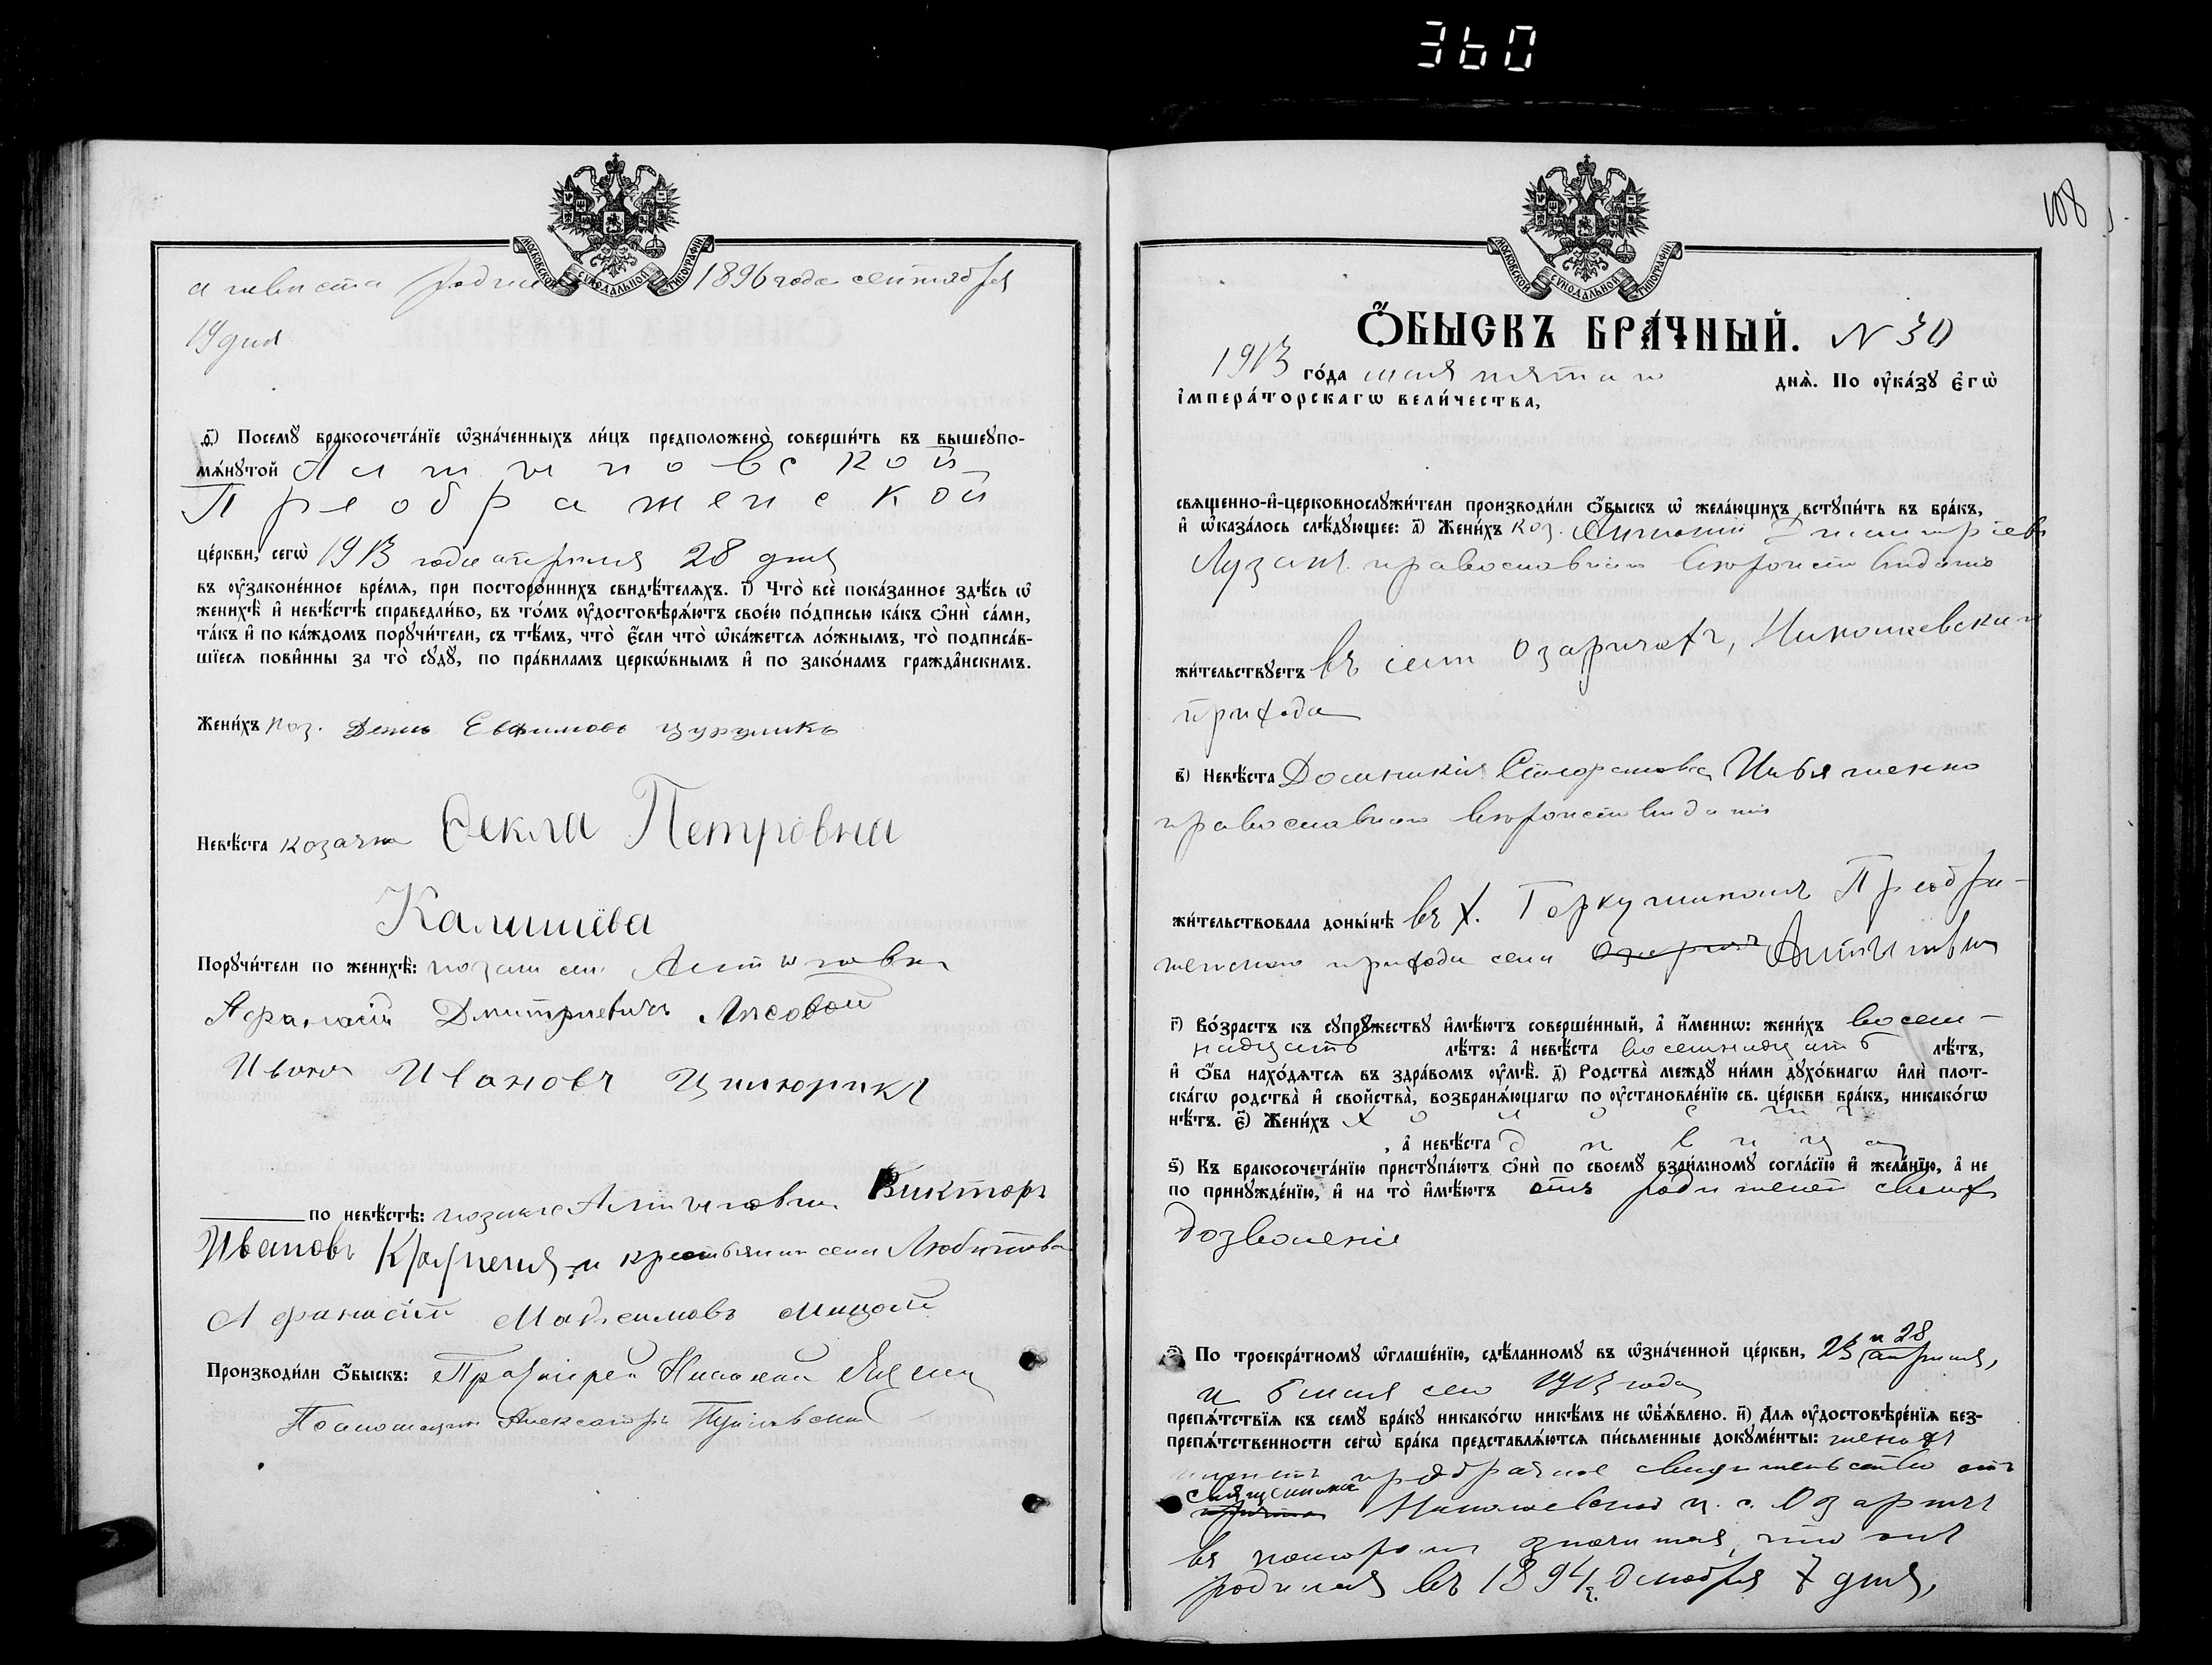 360
МОСКОВСКОЙ СѴНОДАЛЬНОЙ ТИПОГРАФІИ
а невѣста родил 1896 года сентября
19 дня
ѳ҃) Посемꙋ бракосочета́нїе ѡ҆зна́ченныхъ ли́цъ предположено̀ соверши́ть въ вышеꙋпо-
мѧ́нꙋтой Алтыновской
Преображенской
це́ркви, сегѡ̀ 1913 года апрѣля 28 дня
въ ᲂу҆законе́нное вре́мѧ, при посторо́ннихъ свидѣ́телѧхъ. і҃) Что̀ всѐ пока́занное здѣ́сь ѡ҆
женихѣ̀ и҆ невѣ́стѣ справедли́во, въ то́мъ ᲂу҆достовѣрѧ́ютъ свое́ю по́дписью ка́къ ѻ҆нѝ са́ми,
та́къ и҆ по ка́ждомъ порꙋчи́тели, съ тѣ́мъ, что̀ є҆́сли что̀ ѡ҆ка́жетсѧ ло́жнымъ, то̀ подписа́в-
шїесѧ пови́нны за то̀ сꙋдꙋ̀, по пра́виламъ церкѡ́внымъ и҆ по зако́намъ гражда̑нскимъ.
Жени́хъ коз. Евфимовъ Цурупикъ
Невѣ́ста козачка Ѳекла Петровна
Калишева
Порꙋчи́тели по женихѣ̀: козаки сел. Алтыновки
Афанасій Дмитриевичъ Лисовой
Иванъ Ивановъ Цишюрика
по невѣ́стѣ: козакъ с Алтыновки Викторъ
Ивановъ и крестьянин села Любитова
Афанасій Максимовъ Мицой
Производи́ли ѻ҆́быскъ: Протоіерей Николай
Псаломщикъ Александръ
108
МОСКОВСКОЙ СѴНОДАЛЬНОЙ ТИПОГРАФІИ
Ѻ҆́БЫСКЪ БРА́ЧНЫЙ. N 30
1913 го́да мая пятаго днѧ̀. По ᲂу҆ка́зꙋ є҆гѡ̀
і҆мпера́торскагѡ вели́чества,
свѧщенно-и҆-церковнослꙋжи́тели производи́ли ѻ҆́быскъ ѡ҆ жела́ющихъ встꙋпи́ть въ бра́къ,
и҆ ѡ҆каза́лось слѣ́дꙋющее: а҃) Жени́хъ коз. Антоній Димитріевъ
Лузанъ православнаго вѣроисповѣданія
жи́тельствꙋетъ въ селѣ Озаричахъ, Николаевскаго
прихода
в҃) Невѣ́ста Домникія Ильяшенко
православнаго вѣроисповѣданія
жи́тельствовала доны́нѣ въ х. Преобра-
женскаго прихода села Алтыновки
г҃) Во́зрастъ къ сꙋпрꙋ́жествꙋ и҆мѣ́ютъ соверше́нный, а҆ и҆́меннѡ: жени́хъ восем-
надцать лѣ́тъ: а҆ невѣ́ста восемнадцать лѣ́тъ,
и҆ ѻ҆́ба нахо́дѧтсѧ въ здра́вомъ ᲂу҆мѣ̀. д҃) Родства̀ междꙋ̀ ни́ми дꙋхо́внагѡ и҆лѝ плот-
ска́гѡ родства̀ и҆ свойства̀, возбранѧ́ющагѡ по ᲂу҆становле́нїю св. це́ркви бра́къ, никако́гѡ
нѣ́тъ. є҃) Жени́хъ холостъ
, а҆ невѣ́ста дѣвица
ѕ҃) Къ бракосочета́нїю пристꙋпа́ютъ ѻ҆нѝ по своемꙋ̀ взаи́мномꙋ согла́сїю и҆ жела́нїю, а҆ не
по принꙋжде́нїю, и҆ на то̀ и҆мѣ́ютъ отъ родителей своихъ
дозволеніе
з҃) По троекра́тномꙋ ѡ҆глаше́нїю, сдѣ́ланномꙋ въ ѡ҆зна́ченной це́ркви, 23 и 28 апрѣля,
и 5 мая сего 1913 года
препѧ́тствїѧ къ семꙋ̀ бра́кꙋ никако́гѡ никѣ́мъ не ѡ҆б̾ѧ́влено. и҃) Длѧ ᲂу҆достовѣре́нїѧ без-
препѧ́тственности сегѡ̀ бра́ка представлѧ́ютсѧ пи́сьменные докꙋме́нты: женихъ
предбрачное свидѣтельство отъ
священника Николаевской ц. с. Озаричъ
въ котором значится, что онъ
родился въ 1894 г. октября 7 дня,